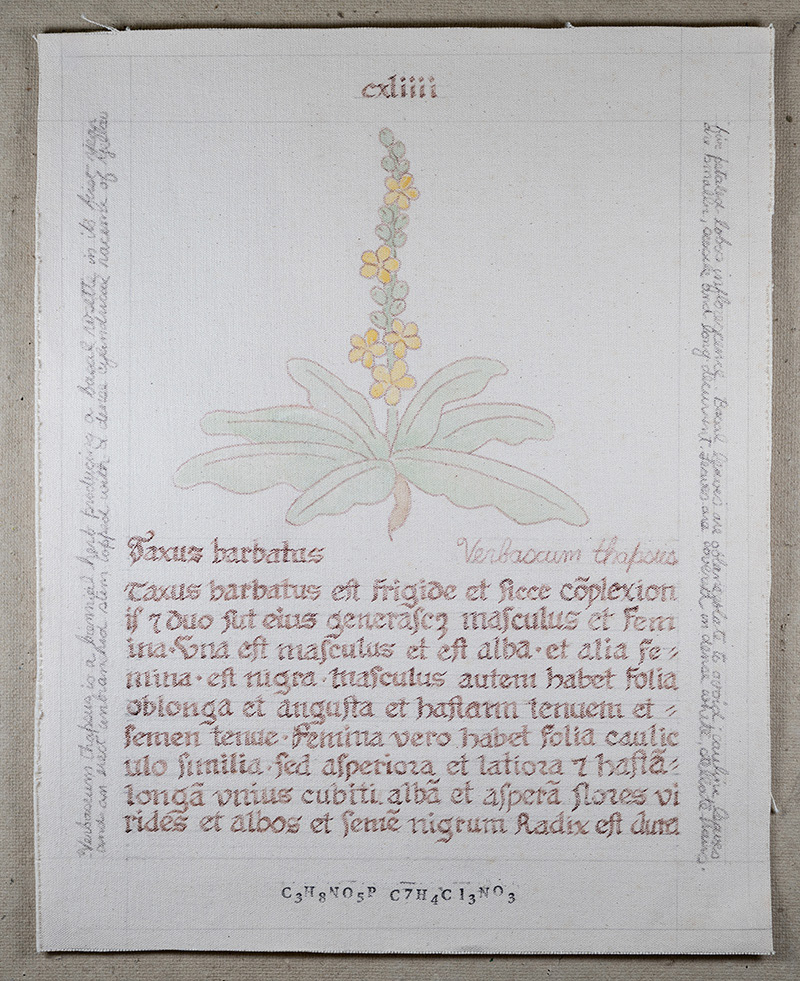 cxliiii
Taxus barbatus
Verbascum thapsus
Taxus barbatus eſt frigide et ſicce cõplexion
iſ ⁊ duo ſũt eius generaſcꝫ maſculus et Fem
ina·Una eſt maſculus et eſt alba·et alia fe⸗
mina·eſt nigra·maſculus autem habet folia
oblonga et anguſta et haſtarm tenuem et ⸗
ſemen tenue·Femina vero habet folia caulic
ulo ſimilia·ſed aſperiora et latiora ⁊ haſtã⸗
longã vnius cubiti albã et aſperã flores vi
rides et albos et ſemẽ nigrum Radix eſt dura
C3H8NO5P C7H4C13NO3
Verbascum thapsus is a biennial herb producing a basal rosette in its first year
and an erect unbranched stem topped with a dense cylindrical raceme of yellow
five petaled lobes inflorescence. Basal leaves are oblanceolate to ovoid, cauline leaves
are smaller, sessile and long decurrent. Leaves are covered in dense white, stellate hairs.